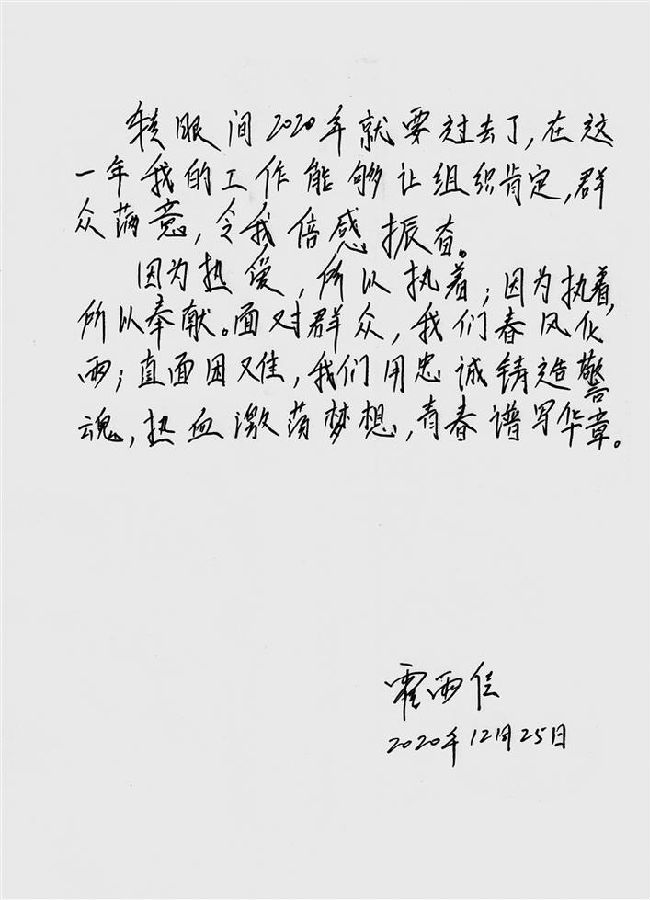 转眼间2020年就要过去了,在这
一年我的工作能够让组织肯定,群
众满意,令我倍感振奋。
因为热爱,所以执着;因为执着,
所以奉献。面对群众,我们春风化
雨;直面困难,我们用忠诚铸造警
魂,热血激荡梦想,青春谱写华章。
霍雨佳
2020年12月25日